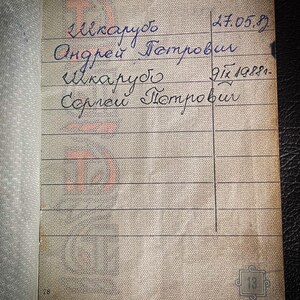 Шкарубо 27.05.82
Андрей Петрович
Шкарубо 9 IX 1988г.
Сергей Петрович
13